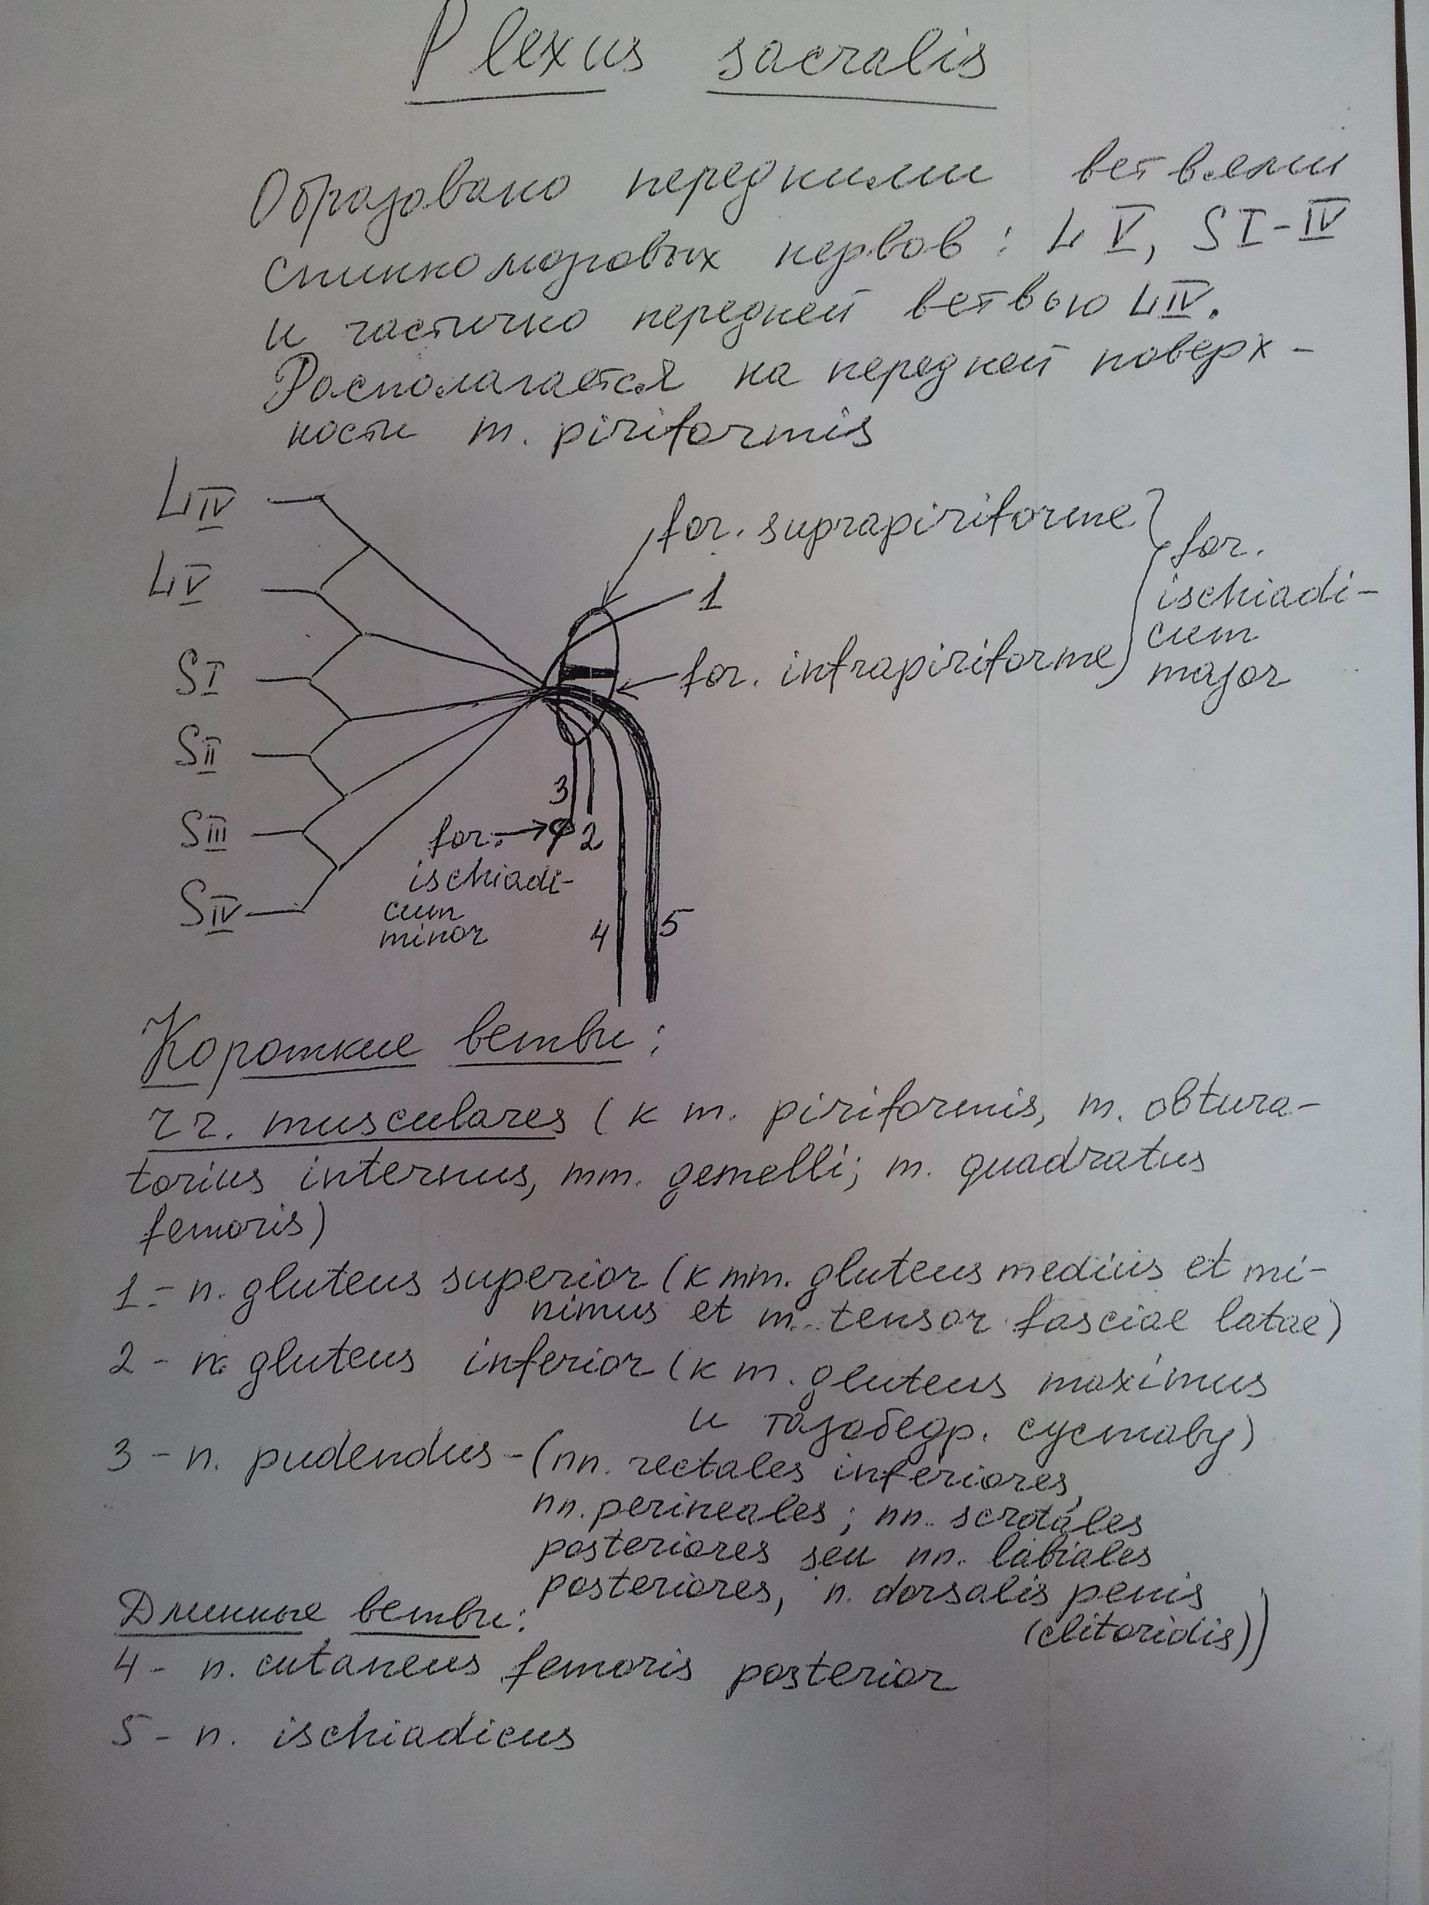 Plexus sacralis
Образовано передними ветвями
спинномозговых нервов: LV, SI-IV
и частично передней ветвью LIV.
Располагается на передней поверх-
ности m. piriformis
LIV
LV
SI
SII
SIII
SIV
for. suprapiriforme
1
for. infrapiriforme
for.
ischiadi-
cum
major
3
2
for.
ischiadi-
cum
minor
4
5
Короткие ветви:
rr. musculares (к m. piriformis, m. obtura-
torius internus, mm. gemelli; m. quadratus
femoris)
1.- n. gluteus superior (к mm. gluteus medius et mi-
nimus et m. tensor fasciae latae)
2 - n. gluteus inferior (к m. gluteus maximus
и тазобедр. суставу)
3 - n. pudendus - (nn. rectales inferiores,
nn. perineales; nn. scrotales
posteriores seu nn. labiales
posteriores, n. dorsalis penis
(clitoridis))
Длинные ветви:
4 - n. cutaneus femoris posterior
5 - n. ischiadicus